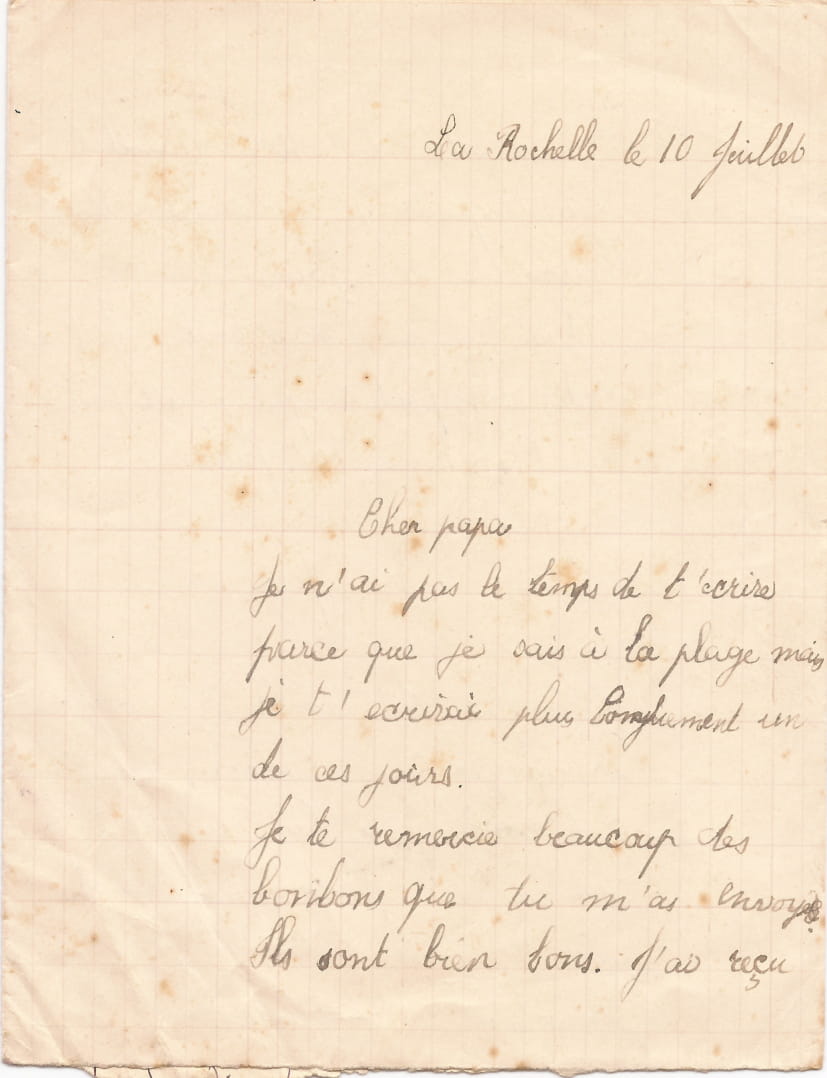 La Rochelle le 10 Juillet
Cher papa
Je n'ai pas le temps de t'écrire
parce que je vais à la plage mais
je t'ecrirai plus longuement un
de ces jours.
Je te remercie beaucoup des
bonbons que tu m'as envoyés.
Ils sont bien bons. J'ai reçu